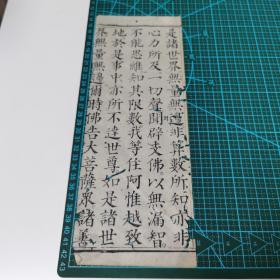 是諸世界無量無邊非算數所知亦非
心力所及一切聲聞辟支佛以無漏智
不能思惟知其限數我等住阿惟越致
地於是事中亦所不達世尊如是諸世
界無量無邊爾時佛告大菩薩眾諸善